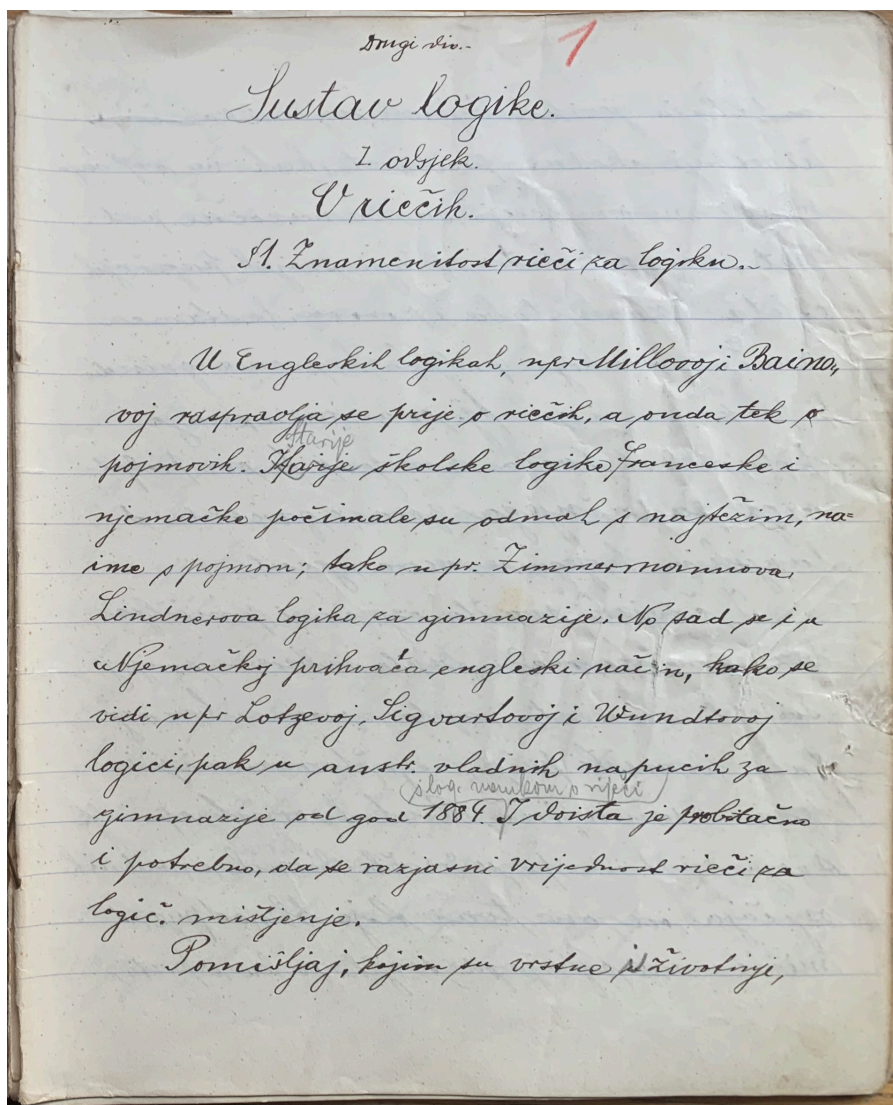 Drugi dio.-
1
Sustav logike.
I. odsjek.
O riečih.
§1. Znamenitost rieči za logiku.-
U Engleskih logikah, npr Millovoj i Baino„
voj raspravlja se prije o riečih, a onda tek o
Starije
pojmovih. Starije školske logike Franceske i
njemačke počimale su odmah s najtežim, na=
ime s pojmom; tako n pr. Zimmermannova,
Lindnerova logika za gimnazije. No sad se i u
Njemačkoj prihvaća engleski način, kako se
vidi n pr Lotzevoj, Sigvartovoj i Wundtovoj
logici, pak u austr. vladnih napucih za
s log. naukom o riječi
gimnazije od god 1884. I doista je probitačno
i potrebno, da se razjasni vrijednost rieči za
logič. mišljenje.
Pomišljaj, kojim su vrstne i životinje,